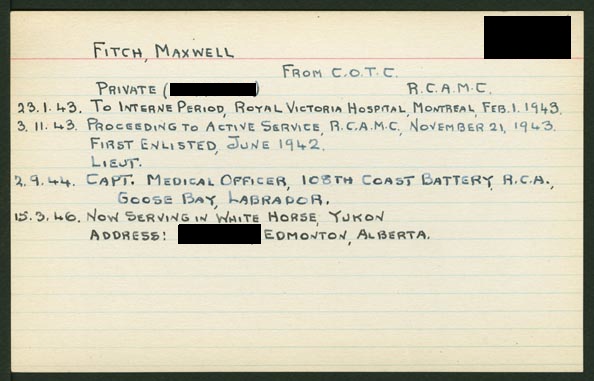 FITCH, MAXWELL
FROM C.O.T.C.
PRIVATE ( ) R.C.A.M.C.
23.1.43. TO INTERNE PERIOD, ROYAL VICTORIA HOSPITAL, MONTREAL, FEB. 1. 1943.
3.11.43. PROCEEDING TO ACTIVE SERVICE, R.C.A.M.C, NOVEMBER 21, 1943.
FIRST ENLISTED, JUNE 1942.
LIEUT.
2.9.44. CAPT. MEDICAL OFFICER, 108TH COAST BATTERY, R.C.A.,
GOOSE BAY, LABRADOR.
15.3.46. NOW SERVING IN WHITE HORSE, YUKON
ADDRESS: EDMONTON, ALBERTA.